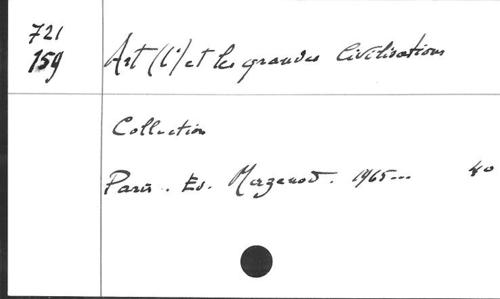 721
159
Art (l') et les grandes Civilisations
Collection
Paris. Ed. Mazenod. 1965... 4o